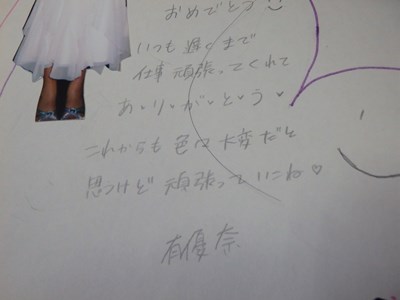 おめでとう
いつも遅くまで
仕事頑張ってくれて
あ・り・が・と・う♥
これからも色々大変だと
思うけど頑張っていこね♡
有優奈